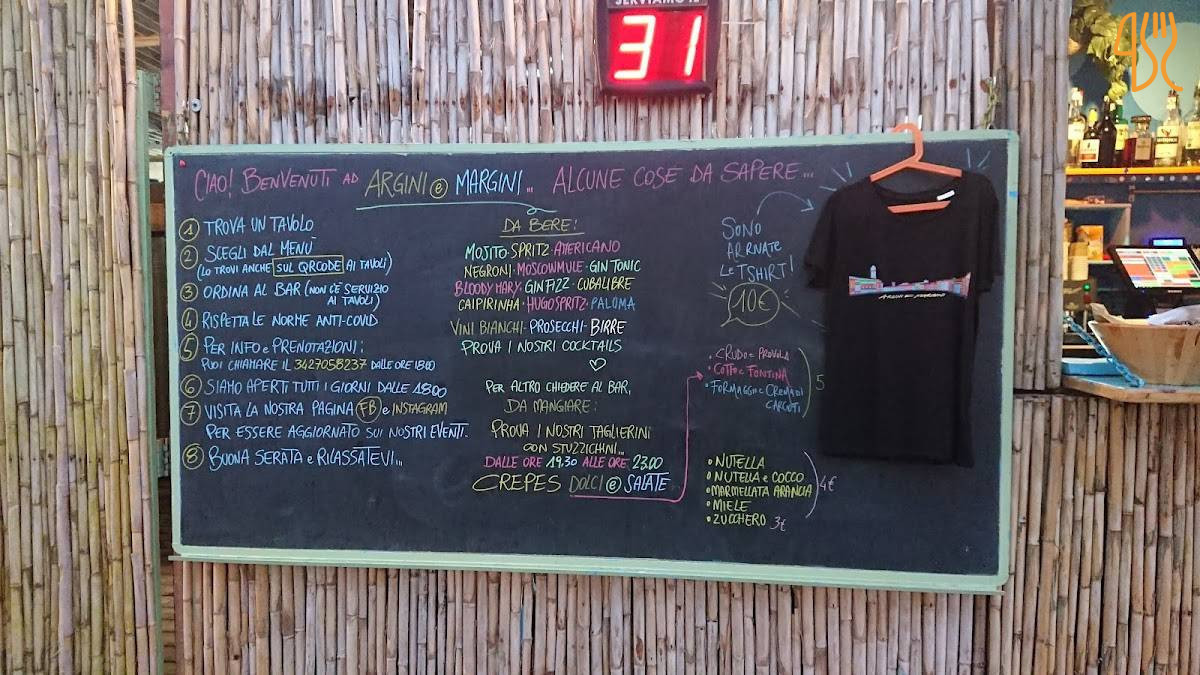 31
CIAO! BENVENUTI AD ARGINI e MARGINI... ALCUNE COSE DA SAPERE...
1 TROVA UN TAVOLO
2 SCEGLI DAL MENU'
(LO TROVI ANCHE SUL QRCODE AI TAVOLI)
3 ORDINA AL BAR (NON C'È SERVIZIO
AI TAVOLI)
4 RISPETTA LE NORME ANTI-COVID
5 PER INFO e PRENOTAZIONI:
PUOI CHIAMARE IL 3427058237 DALLE ORE 18:00
6 SIAMO APERTI TUTTI I GIORNI DALLE 18:00
7 VISITA LA NOSTRA PAGINA FB e INSTAGRAM
PER ESSERE AGGIORNATO SUI NOSTRI EVENTI.
8 BUONA SERATA e RILASSATEVI...
DA BERE:
MOJITO · SPRITZ · AMERICANO
NEGRONI · MOSCOWMULE · GIN TONIC
BLOODY MARY · GINFIZZ · CUBALIBRE
CAIPIRINHA · HUGOSPRITZ · PALOMA
VINI BIANCHI · PROSECCHI · BIRRE
PROVA I NOSTRI COCKTAILS
PER ALTRO CHIEDERE AL BAR,
DA MANGIARE:
PROVA I NOSTRI TAGLIERINI
CON STUZZICHINI...
DALLE ORE 19,30 ALLE ORE 23.00
CREPES DOLCI e SALATE
SONO
ARRIVATE
LE TSHIRT!
10€
• CRUDO e PROVOLA
• COTTO e FONTINA
• FORMAGGIO e CREMA DI
CARCIOFI
5
• NUTELLA
• NUTELLA e COCCO
• MARMELLATA ARANCIA
• MIELE
4€
• ZUCCHERO 3€